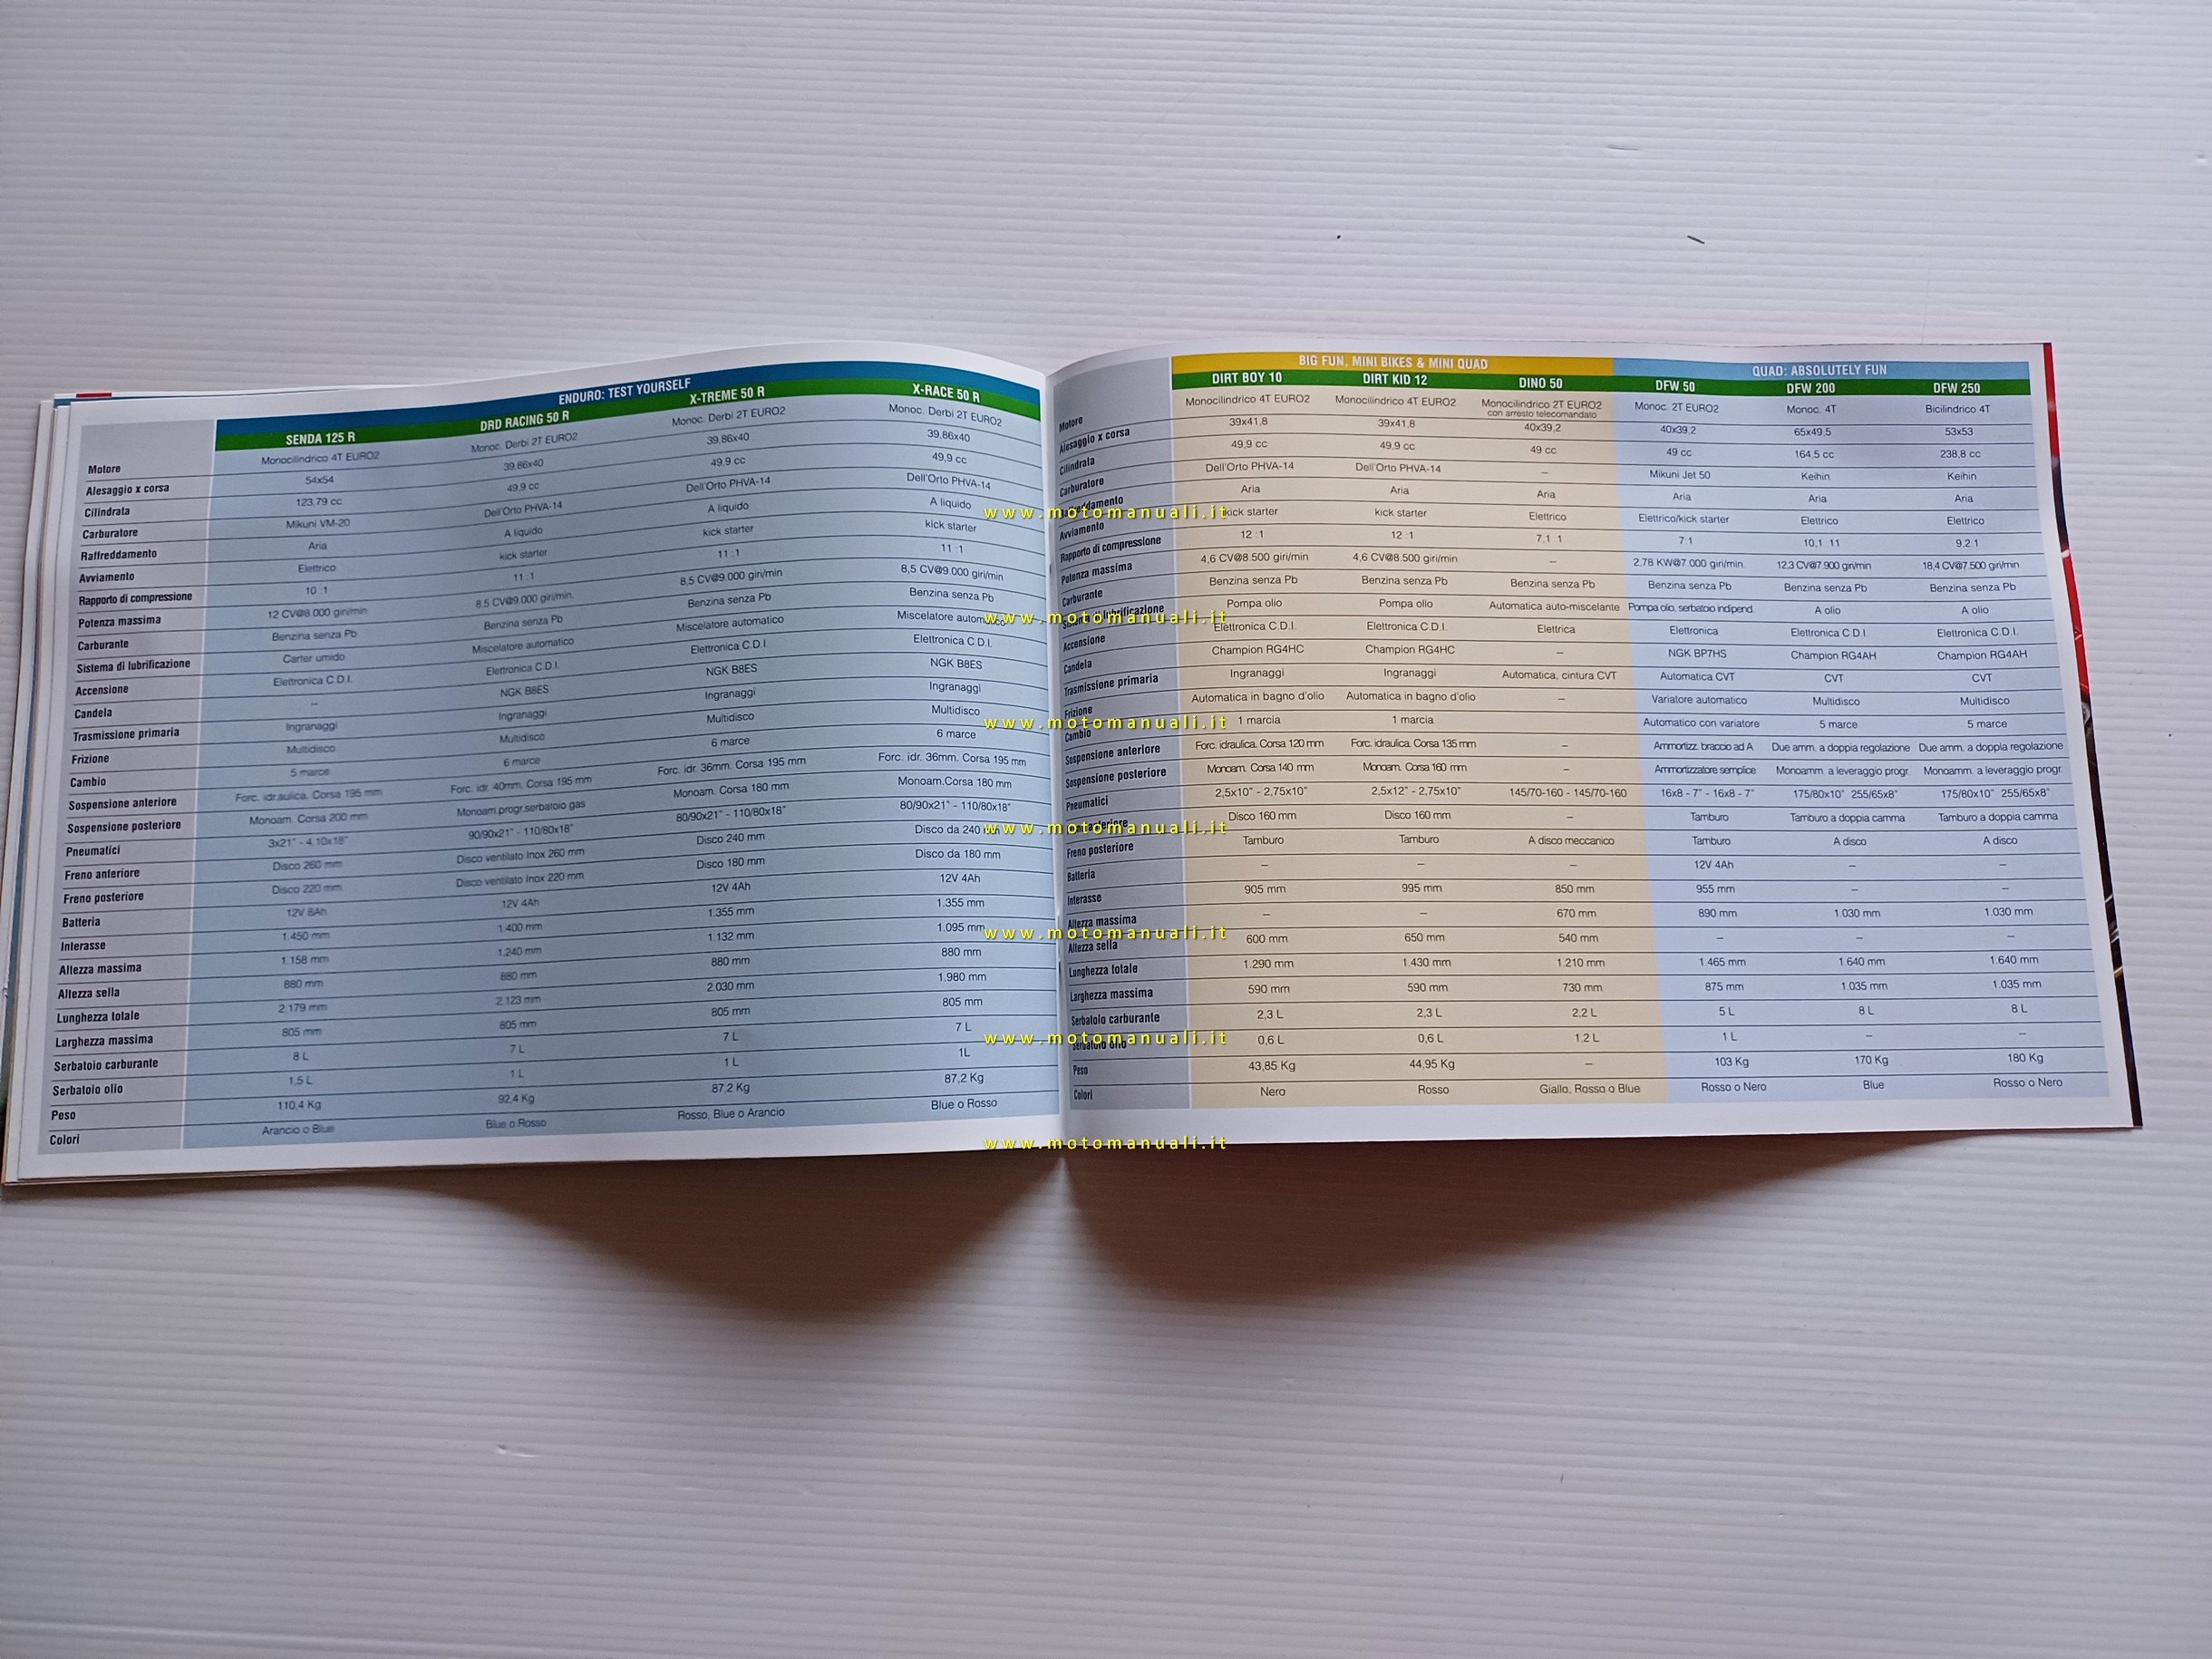 ENDURO: TEST YOURSELF
SENDA 125 R DRD RACING 50 R X-TREME 50 R X-RACE 50 R
Motore Monocilindrico 4T EURO2 Monoc. Derbi 2T EURO2 Monoc. Derbi 2T EURO2 Monoc. Derbi 2T EURO2
Alesaggio x corsa 54x54 39,86x40 39,86x40 39,86x40
Cilindrata 123,79 cc 49,9 cc 49,9 cc 49,9 cc
Carburatore Mikuni VM-20 Dell'Orto PHVA-14 Dell'Orto PHVA-14 Dell'Orto PHVA-14
Raffreddamento Aria A liquido A liquido A liquido
Avviamento Elettrico kick starter kick starter kick starter
Rapporto di compressione 10 :1 11 :1 11 :1 11 :1
Potenza massima 12 CV@8.000 giri/min 8,5 CV@9.000 giri/min. 8,5 CV@9.000 giri/min 8,5 CV@9.000 giri/min
Carburante Benzina senza Pb Benzina senza Pb Benzina senza Pb Benzina senza Pb
Sistema di lubrificazione Carter umido Miscelatore automatico Miscelatore automatico Miscelatore
Accensione Elettronica C.D.I. Elettronica C.D.I. Elettronica C.D.I. Elettronica C.D.I.
Candela -- NGK B8ES NGK B8ES NGK B8ES
Trasmissione primaria Ingranaggi Ingranaggi Ingranaggi Ingranaggi
Frizione Multidisco Multidisco Multidisco Multidisco
Cambio 5 marce 6 marce 6 marce 6 marce
Sospensione anteriore Forc. idr.aulica. Corsa 195 mm Forc. idr. 40mm. Corsa 195 mm Forc. idr. 36mm. Corsa 195 mm Forc. idr. 36mm. Corsa 195 mm
Sospensione posteriore Monoam. Corsa 200 mm Monoam.progr.serbatoio gas Monoam. Corsa 180 mm Monoam.Corsa 180 mm
Pneumatici 3x21" - 4.10x18" 90/90x21" - 110/80x18" 80/90x21" - 110/80x18" 80/90x21" - 110/80x18"
Freno anteriore Disco 260 mm Disco ventilato Inox 260 mm Disco 240 mm Disco da 240 mm
Freno posteriore Disco 220 mm Disco ventilato Inox 220 mm Disco 180 mm Disco da 180 mm
Batteria 12V 8Ah 12V 4Ah 12V 4Ah 12V 4Ah
Interasse 1.450 mm 1.400 mm 1.355 mm 1.355 mm
Altezza massima 1.158 mm 1.240 mm 1.132 mm 1.095 mm
Altezza sella 880 mm 880 mm 880 mm 880 mm
Lunghezza totale 2.179 mm 2.123 mm 2.030 mm 1.980 mm
Larghezza massima 805 mm 805 mm 805 mm 805 mm
Serbatoio carburante 8 L 7 L 7 L 7 L
Serbatoio olio 1,5 L 1 L 1 L 1L
Peso 110,4 Kg 92,4 Kg 87,2 Kg 87,2 Kg
Colori Arancio o Blue Blue o Rosso Rosso, Blue o Arancio Blue o Rosso
BIG FUN, MINI BIKES & MINI QUAD QUAD: ABSOLUTELY FUN
DIRT BOY 10 DIRT KID 12 DINO 50 DFW 50 DFW 200 DFW 250
Motore Monocilindrico 4T EURO2 Monocilindrico 4T EURO2 Monocilindrico 2T EURO2 con arresto telecomandato Monoc. 2T EURO2 Monoc. 4T Bicilindrico 4T
Alesaggio x corsa 39x41,8 39x41,8 40x39,2 40x39,2 65x49,5 53x53
Cilindrata 49,9 cc 49,9 cc 49 cc 49 cc 164,5 cc 238,8 cc
Carburatore Dell'Orto PHVA-14 Dell'Orto PHVA-14 – Mikuni Jet 50 Keihin Keihin
Aria Aria Aria Aria Aria Aria
Avviamento kick starter kick starter Elettrico Elettrico/kick starter Elettrico Elettrico
Rapporto di compressione 12 :1 12 :1 7,1 :1 7:1 10,1 :11 9,2:1
Potenza massima 4,6 CV@8.500 giri/min 4,6 CV@8.500 giri/min – 2,78 KW@7.000 giri/min. 12,3 CV@7.900 giri/min 18,4 CV@7.500 giri/min
Carburante Benzina senza Pb Benzina senza Pb Benzina senza Pb Benzina senza Pb Benzina senza Pb Benzina senza Pb
lubrificazione Pompa olio Pompa olio Automatica auto-miscelante Pompa olio, serbatoio indipend. A olio A olio
Accensione Elettronica C.D.I. Elettronica C.D.I. Elettrica Elettronica Elettronica C.D.I. Elettronica C.D.I.
Candela Champion RG4HC Champion RG4HC – NGK BP7HS Champion RG4AH Champion RG4AH
Trasmissione primaria Ingranaggi Ingranaggi Automatica, cintura CVT Automatica CVT CVT CVT
Frizione Automatica in bagno d'olio Automatica in bagno d'olio – Variatore automatico Multidisco Multidisco
Cambio 1 marcia 1 marcia Automatico con variatore 5 marce 5 marce
Sospensione anteriore Forc. idraulica. Corsa 120 mm Forc. idraulica. Corsa 135 mm – Ammortizz. braccio ad A Due amm. a doppia regolazione Due amm. a doppla regolazione
Sospensione posteriore Monoam. Corsa 140 mm Monoam. Corsa 160 mm – Ammortizzatore semplice Monoamm. a leveraggio progr. Monoamm. a leveraggio progr.
Pneumatici 2,5x10" - 2,75x10" 2,5x12" - 2,75x10" 145/70-160 - 145/70-160 16x8 - 7" - 16x8 - 7" 175/80x10" 255/65x8" 175/80x10" 255/65x8"
Disco 160 mm Disco 160 mm – Tamburo Tamburo a doppia camma Tamburo a doppia camma
Freno posteriore Tamburo Tamburo A disco meccanico Tamburo A disco A disco
Batteria – – – 12V 4Ah – –
Interasse 905 mm 995 mm 850 mm 955 mm – –
Altezza massima – – 670 mm 890 mm 1.030 mm 1.030 mm
Altezza sella 600 mm 650 mm 540 mm – – –
Lunghezza totale 1.290 mm 1.430 mm 1.210 mm 1.465 mm 1.640 mm 1.640 mm
Larghezza massima 590 mm 590 mm 730 mm 875 mm 1.035 mm 1.035 mm
Serbatoio carburante 2,3 L 2,3 L 2,2 L 5 L 8 L 8 L
Serbatoio olio 0,6 L 0,6 L 1,2 L 1 L – –
Peso 43,85 Kg 44,95 Kg – 103 Kg 170 Kg 180 Kg
Colori Nero Rosso Giallo, Rosso o Blue Rosso o Nero Blue Rosso o Nero
www.motomanuali.it
www.motomanuali.it
www.motomanuali.it
www.motomanuali.it
www.motomanuali.it
www.motomanuali.it
www.motomanuali.it